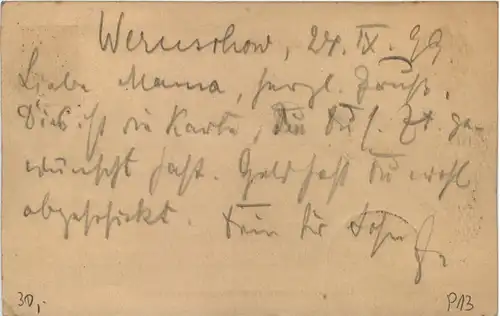 Weruschow, 24. IX. 99.
Liebe Mama, herzl. Gruß.
Dies ist die Karte, die Du s. Zt. ge-
wünscht hast. Geld hast Du wohl
abgeschickt. Dein Sohn
30,-
P13